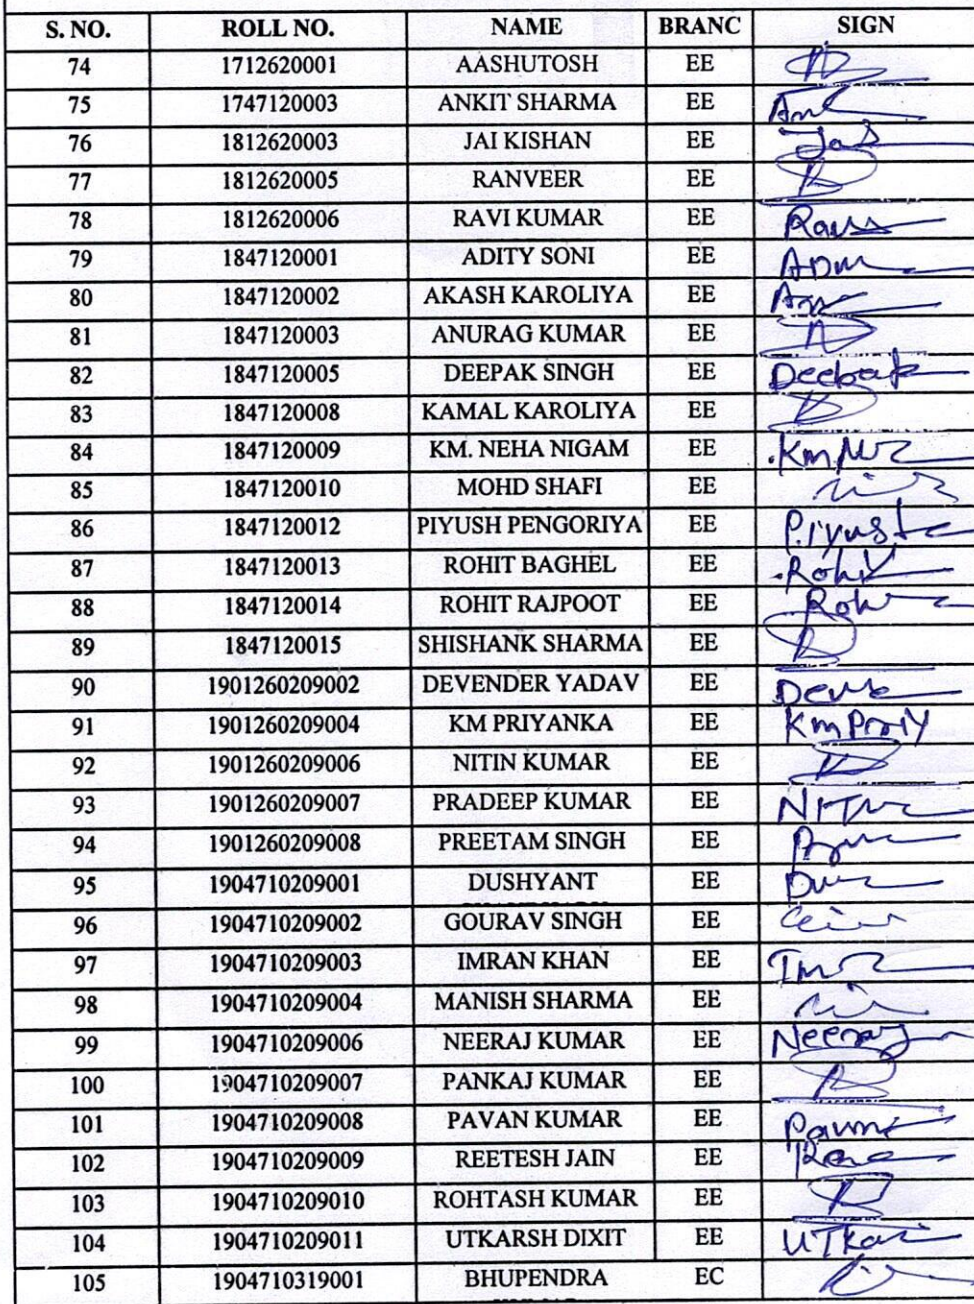 S. NO. ROLL NO. NAME BRANC SIGN
74 1712620001 AASHUTOSH EE
75 1747120003 ANKIT SHARMA EE
76 1812620003 JAI KISHAN EE
77 1812620005 RANVEER EE
78 1812620006 RAVI KUMAR EE
79 1847120001 ADITY SONI EE
80 1847120002 AKASH KAROLIYA EE
81 1847120003 ANURAG KUMAR EE
82 1847120005 DEEPAK SINGH EE Deepak
83 1847120008 KAMAL KAROLIYA EE
84 1847120009 KM. NEHA NIGAM EE
85 1847120010 MOHD SHAFI EE
86 1847120012 PIYUSH PENGORIYA EE
87 1847120013 ROHIT BAGHEL EE Rohit
88 1847120014 ROHIT RAJPOOT EE
89 1847120015 SHISHANK SHARMA EE
90 1901260209002 DEVENDER YADAV EE
91 1901260209004 KM PRIYANKA EE Km Priy
92 1901260209006 NITIN KUMAR EE
93 1901260209007 PRADEEP KUMAR EE
94 1901260209008 PREETAM SINGH EE
95 1904710209001 DUSHYANT EE
96 1904710209002 GOURAV SINGH EE
97 1904710209003 IMRAN KHAN EE
98 1904710209004 MANISH SHARMA EE
99 1904710209006 NEERAJ KUMAR EE Neeraj
100 1904710209007 PANKAJ KUMAR EE
101 1904710209008 PAVAN KUMAR EE
102 1904710209009 REETESH JAIN EE
103 1904710209010 ROHTASH KUMAR EE
104 1904710209011 UTKARSH DIXIT EE UTkar
105 1904710319001 BHUPENDRA EC